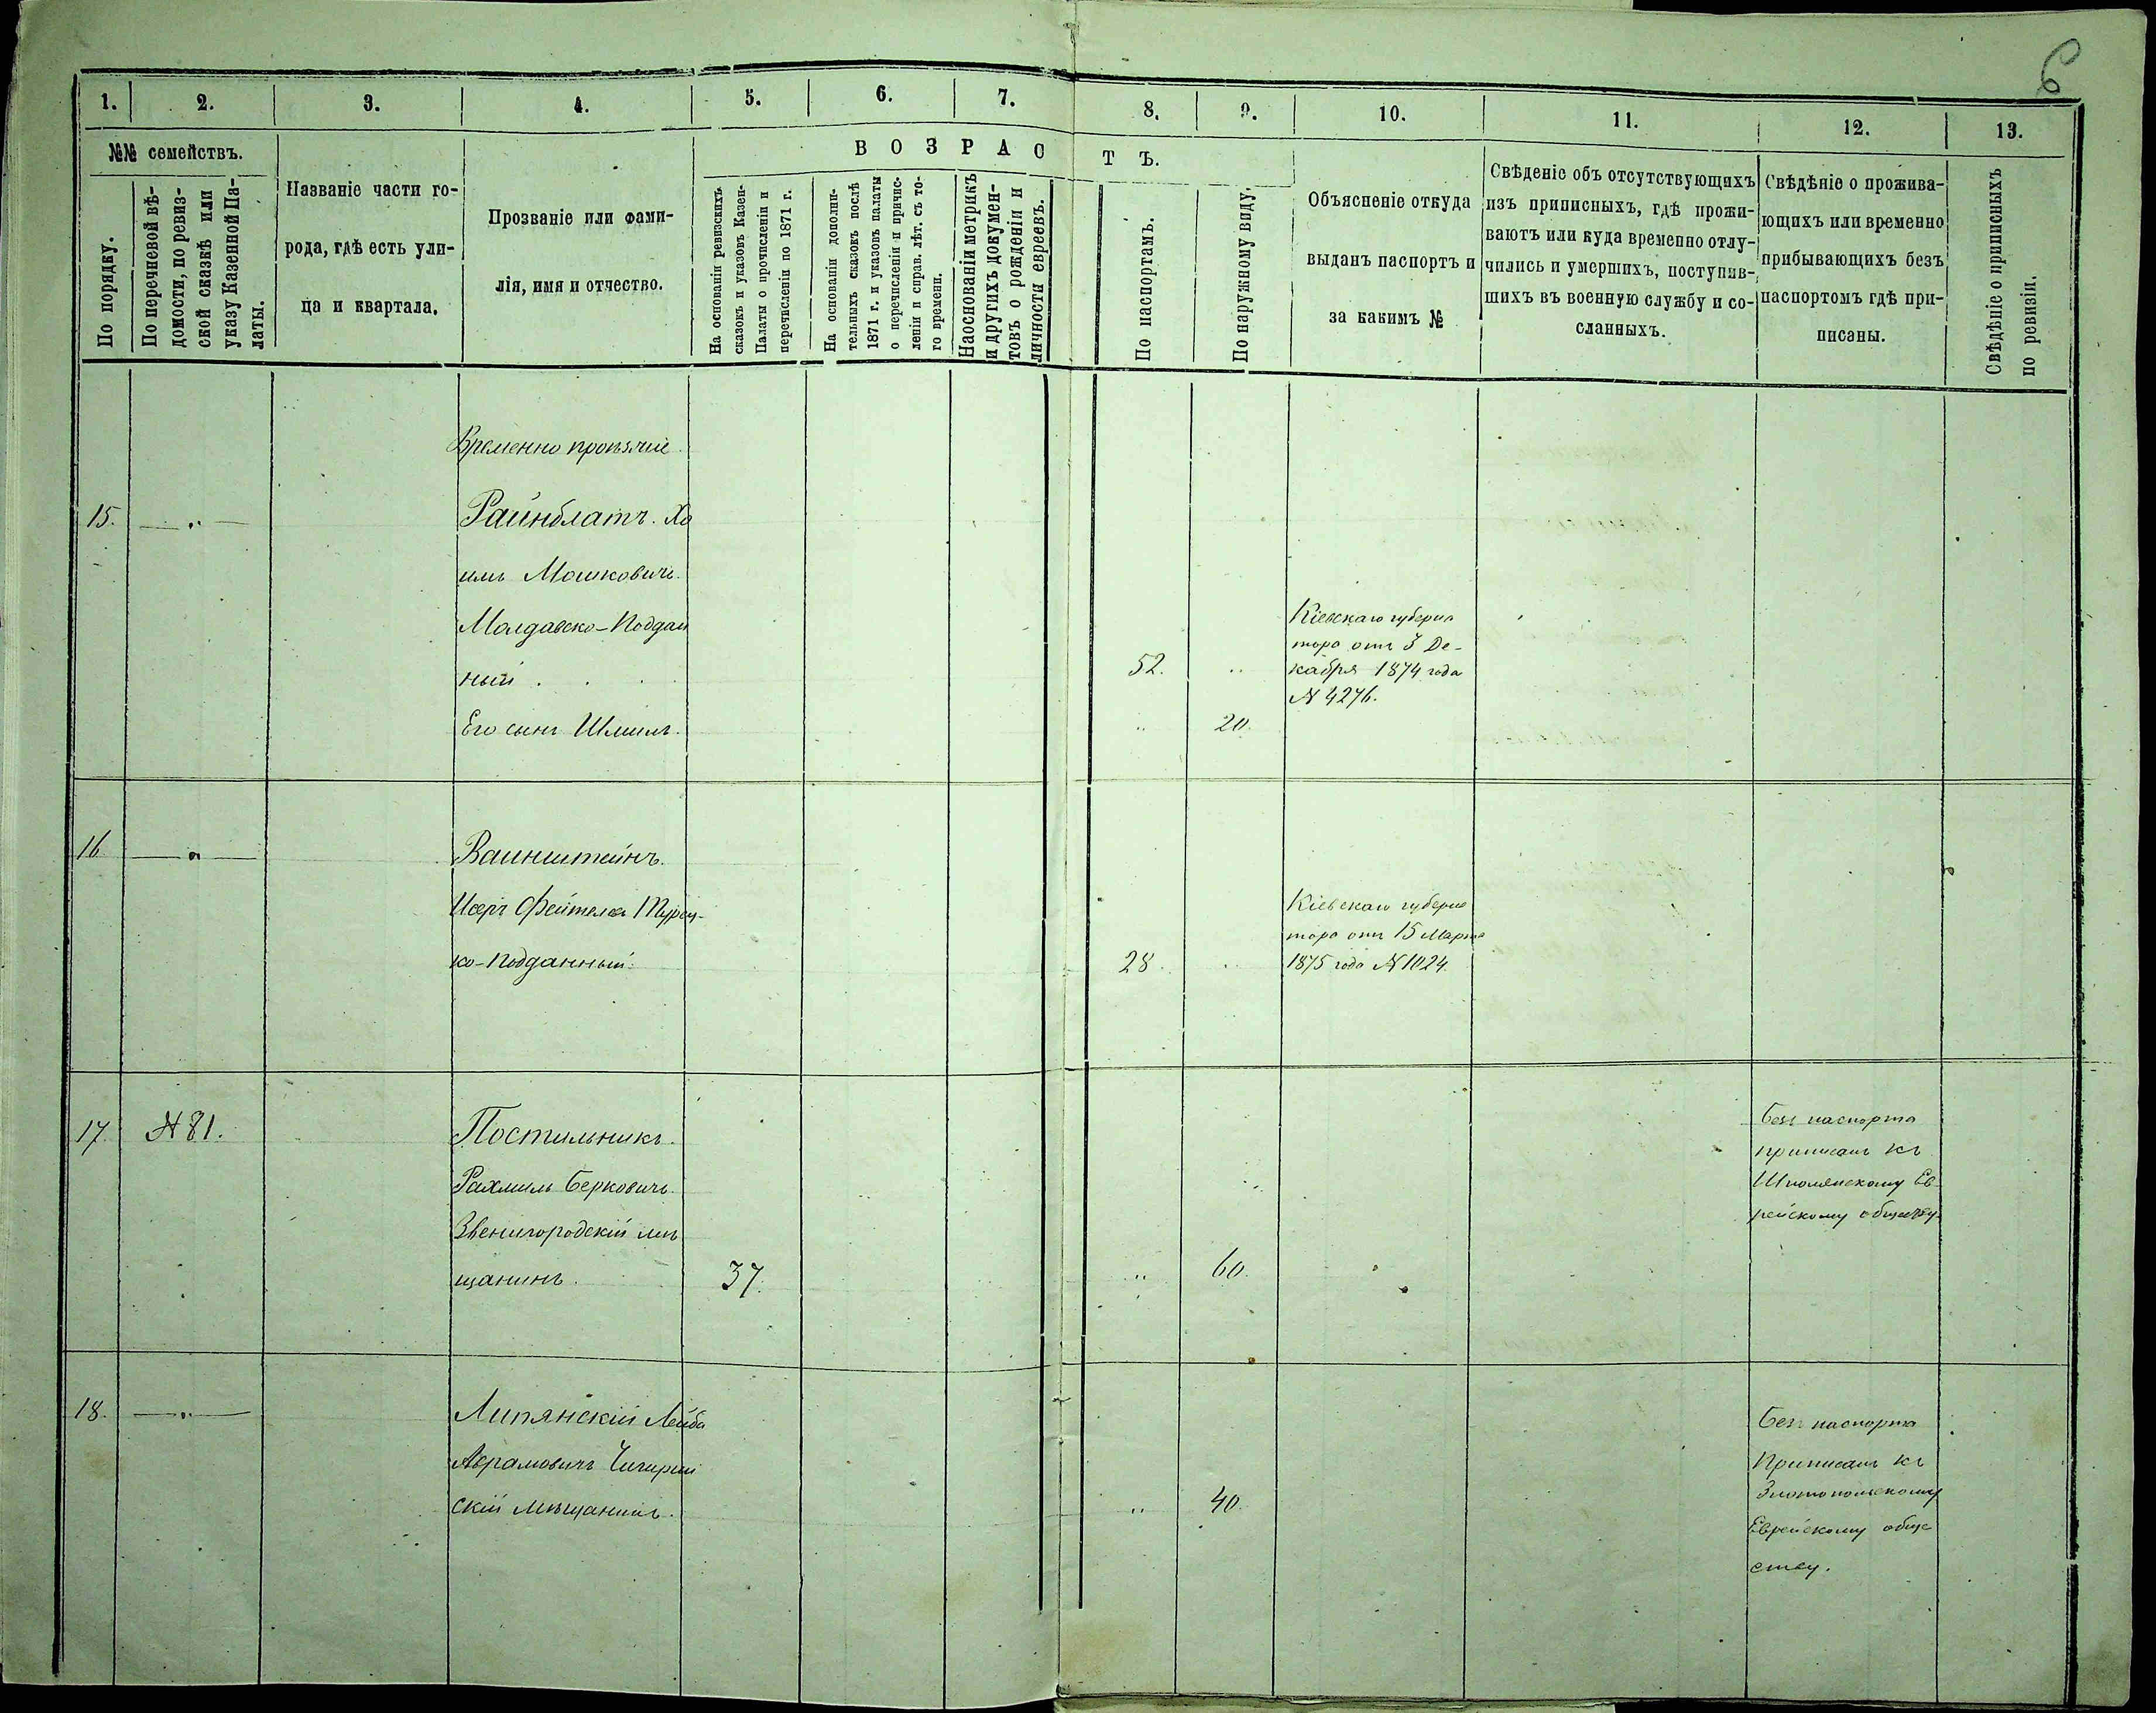 6
1. 2. 3. 4. 5. 6. 7. 8. 9. 10. 11. 12. 13.
№№ семействъ.
По порядку.
По перечневой вѣ-
домости, по ревиз-
ской сказкѣ или
указу Казенной Па-
латы.
Названіе части го-
рода, гдѣ есть ули-
ца и квартала.
Прозваніе или фами-
лія, имя и отчество.
ВОЗРАСТЪ.
На основаніи ревизскихъ
сказокъ и указовъ Казен-
Палаты о прочисленіи и
перечисленіи по 1871 г.
На основаніи дополни-
тельныхъ сказокъ послѣ
1871 г. и указовъ палаты
о перечисленіи и причис-
леніи и справ. лѣт. съ то-
го времени.
На основаніи метрикъ
и другихъ докумен-
товъ о рожденіи и
личности евреевъ.
По паспортамъ.
По наружному виду.
Объясненіе откуда
выданъ паспортъ и
за какимъ №
Свѣденіе объ отсутствующихъ
изъ приписныхъ, гдѣ прожи-
ваютъ или куда временно отлу-
чились и умершихъ, поступив-
шихъ въ военную службу и со-
сланныхъ.
Свѣдѣніе о прожива-
ющихъ или временно
прибывающихъ безъ
паспортомъ гдѣ при-
писаны.
Свѣдѣніе о приписныхъ
по ревизіи.
Временно
15. — „ — Райнблатъ. Хо
имъ Мошковичъ.
Молдавско-Поддан
ный . . . 52. „
Кіевскаго губерна
тора отъ 3 Де-
кабря 1874 года
№ 4276.
Его сынъ Шмилъ. „ 20.
16 — „ — Ваинштейнъ.
Фейтелев Турец-
ко-подданный. 28. „
Кіевскаго губерна
тора отъ 15 Марта
1875 года № 1024.
17. № 81. Постильникъ.
Рахмиль Берковичъ.
Звенигородскій мѣ
щанинъ. 37. „ 60.
Безъ паспорта
приписанъ къ
Шполянскому Ев-
рейскому обществу.
18. — „ — Липянскій Лейба
Аврамовичъ Чигирин
скій мѣщанинъ. „ 40.
Безъ паспорта
Приписанъ къ
Златопольскому
Еврейскому обще
ству.